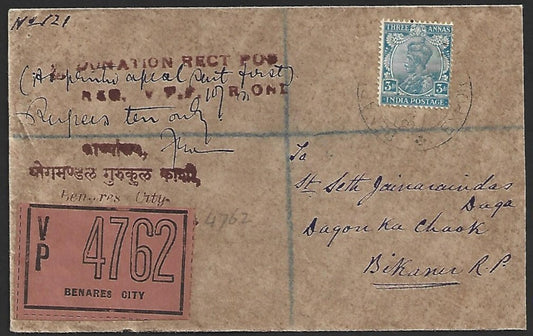 No 121
DONATION RECT POS
(As per His appeal sent first)
REG. V.P.P. FR ONE
Rs 10/-
Rupees ten only
कार्यालय,
योगमण्डल गुरुकुल काशी,
Benares City
4762
V P 4762
BENARES CITY
THREE ANNAS
3a 3a
INDIA POSTAGE
To
St. Seth Jainaraindas
Daga
Dagon ka Chaok
Bikaner R.P.